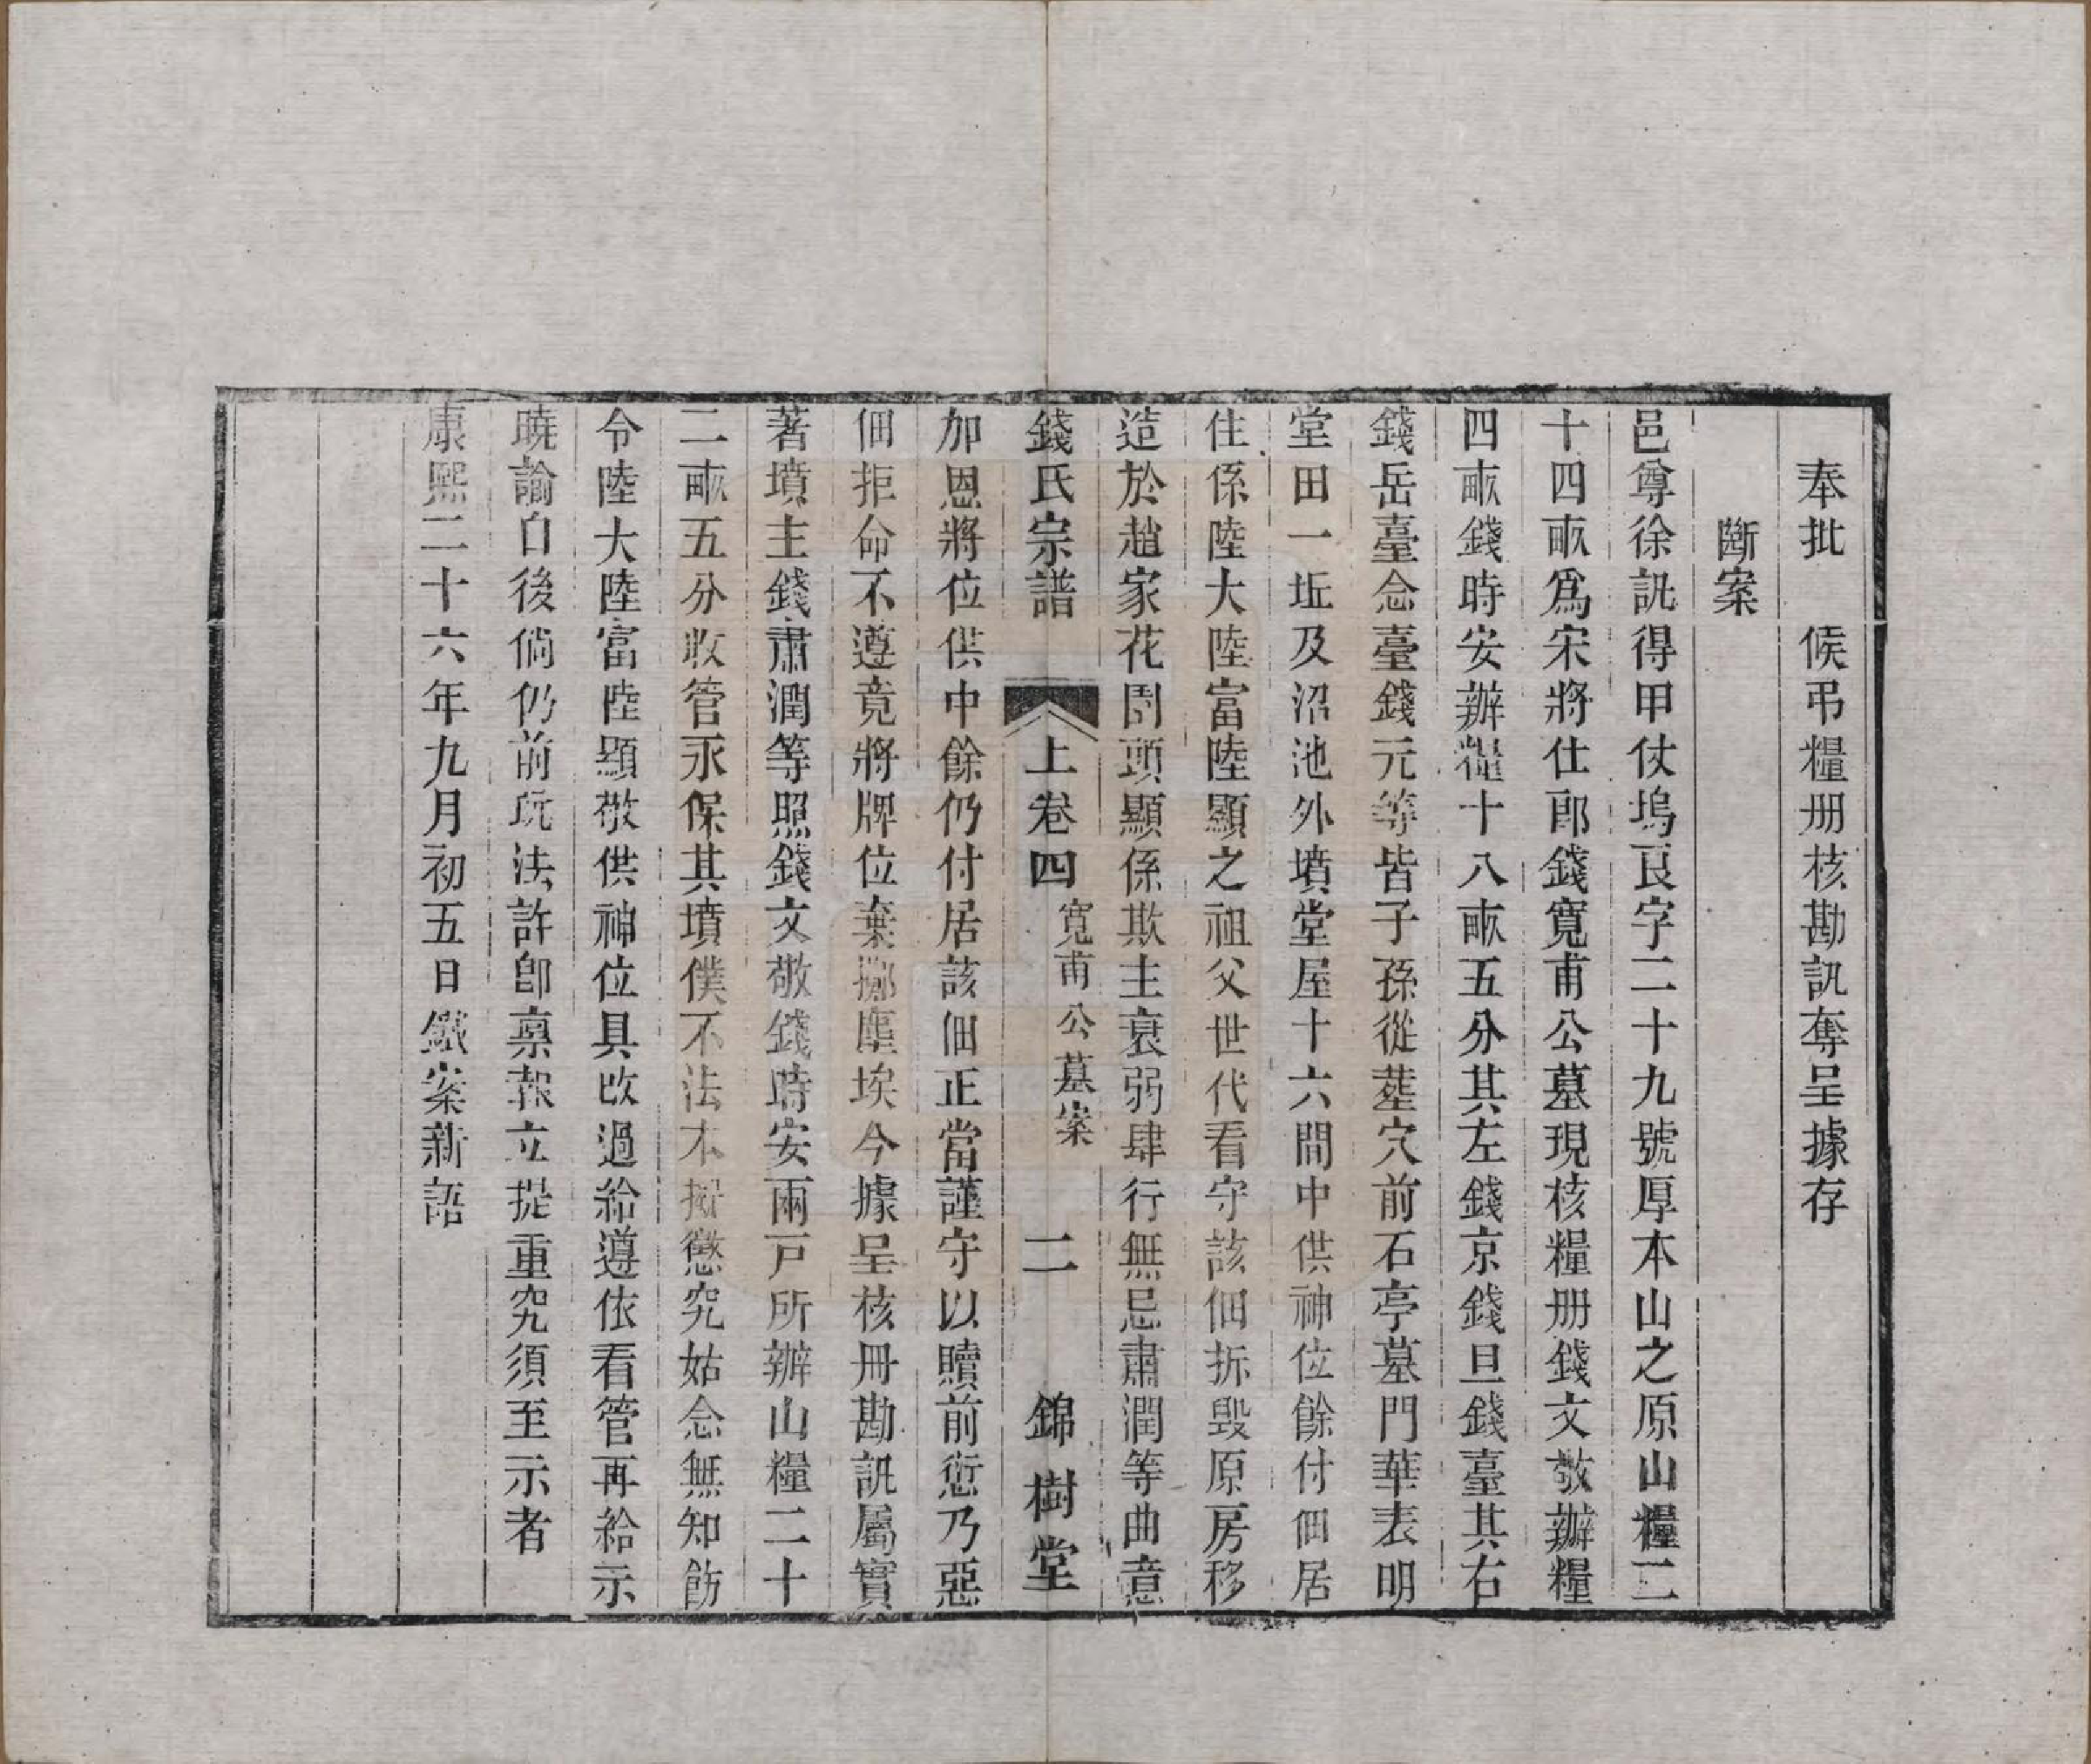 奉批　候弔糧册核勘訊奪呈據存
斷案
邑尊徐訊得甲仗塢艮字二十九號厚本山之原山糧二
十四畝爲宋將仕郎錢寬甫公墓現核糧册錢文敬辦糧
四畝錢時安辦糧十八畝五分其左錢京錢旦錢臺其右
錢岳臺念臺錢元等皆子孫從塟穴前石亭墓門華表明
堂田一坵及沼池外墳堂屋十六間中供神位餘付佃居
住係陸大陸富陸顯之祖父世代看守該佃拆毁原房移
造於趙家花園頭顯係欺主衰弱肆行無忌肅潤等曲意
錢氏宗譜　上卷四　寬甫公墓案　二　錦樹堂
加恩將位供中餘仍付居該佃正當謹守以贖前愆乃惡
佃拒命不遵竟將牌位棄擲塵埃今據呈核冊勘訊屬實
著墳主錢肅潤等照錢文敬錢時安兩戸所辦山糧二十
二畝五分收管永保其墳僕不法本擬懲究姑念無知飭
令陸大陸富陸顯敬供神位具改過給遵依看管再給示
曉諭自後倘仍前玩法許卽禀報立提重究須至示者
康熙二十六年九月初五日鐵案新語